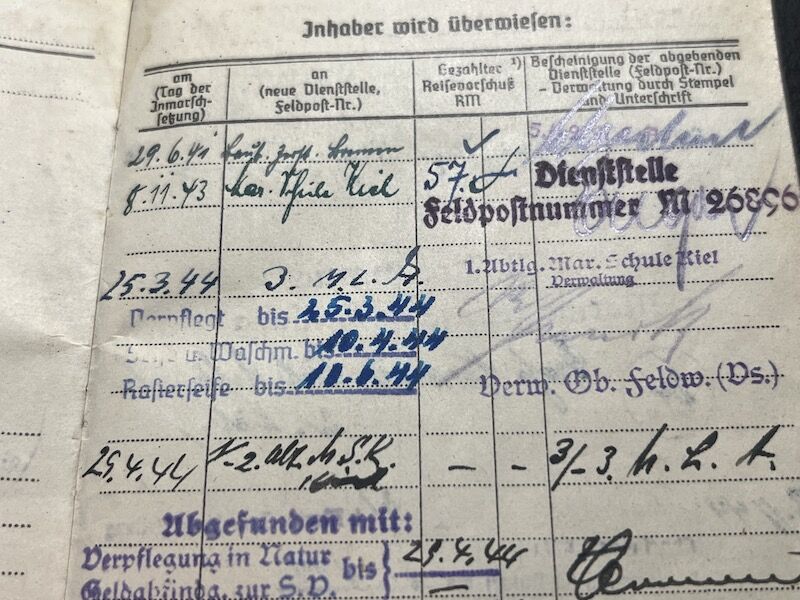 Inhaber wird überwiesen:
am (Tag der Inmarsch-setzung)
an (neue Dienststelle, Feldpost-Nr.)
Gezahlter Reisevorschuß ¹) RM
Bescheinigung der abgebenden Dienststelle (Feldpost-Nr.) - Verwaltung durch Stempel und Unterschrift
29.6.41
8.11.43 Mar. Schule Kiel 57,
Dienststelle
Feldpostnummer M 26896
25.3.44 3. M.L.A.
1. Abtlg. Mar. Schule Kiel
Verwaltung
Verpflegt bis 25.3.44
Seife u. Waschm. bis 10.4.44
Rasierseife bis 10.6.44
Verw. Ob. Feldw. (Vs.)
25.4.44 - - 3/-3. M. L. A.
Abgefunden mit:
Verpflegung in Natur bis 25.4.44
Geldabfindg. zur S.V. —